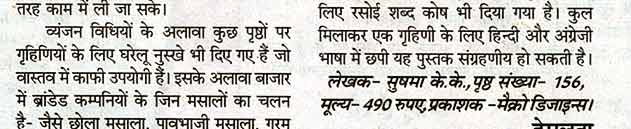 तरह काम में ली जा सके।
व्यंजन विधियों के अलावा कुछ पृष्ठों पर
गृहिणियों के लिए घरेलू नुस्खे भी दिए गए हैं जो
वास्तव में काफी उपयोगी हैं। इसके अलावा बाजार
में ब्रांडेड कम्पनियों के जिन मसालों का चलन
है- जैसे छोला मसाला, पावभाजी मसाला, गरम
लिए रसोई शब्द कोष भी दिया गया है। कुल
मिलाकर एक गृहिणी के लिए हिन्दी और अंग्रेजी
भाषा में छपी यह पुस्तक संग्रहणीय हो सकती है।
लेखक- सुषमा के.के., पृष्ठ संख्या- 156,
मूल्य- 490 रुपए, प्रकाशक -मैक्रो डिजाइन्स।